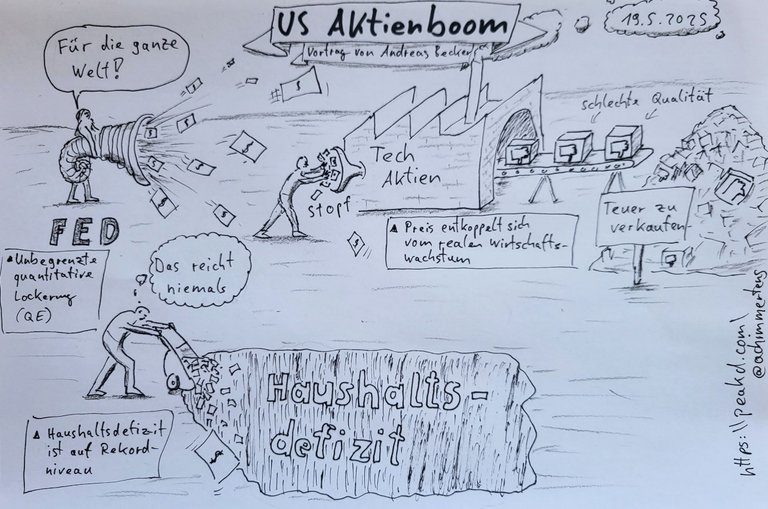 US Aktienboom
Vortrag von Andreas Becker
19.5.2025
Für die ganze
Welt!
FED
Unbegrenzte
quantitative
Lockerung
(QE)
stopf
Tech
Aktien
schlechte Qualität
Preis entkoppelt sich
vom realen Wirtschafts-
wachstum
Teuer zu
verkaufen
Das reicht
niemals
Haushalts-
defizit
Haushaltsdefizit
ist auf Rekord-
niveau
https://peakd.com/
@achimmertens